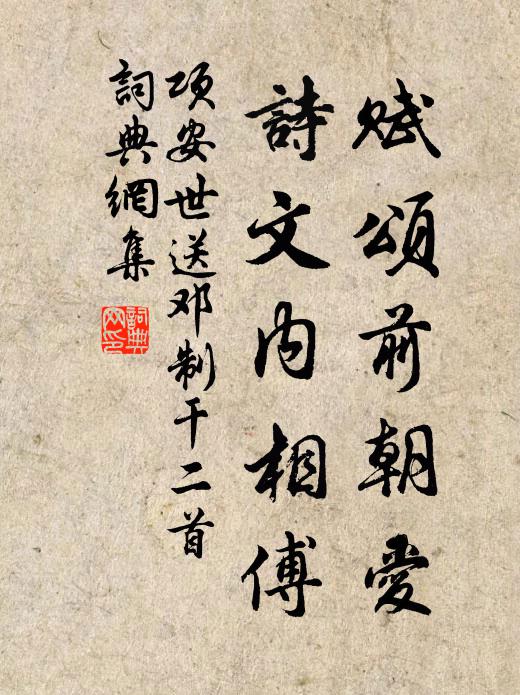 赋頌前朝愛
詩文内相傅
项安世送邓制干二首
詞典網集
詞典网印